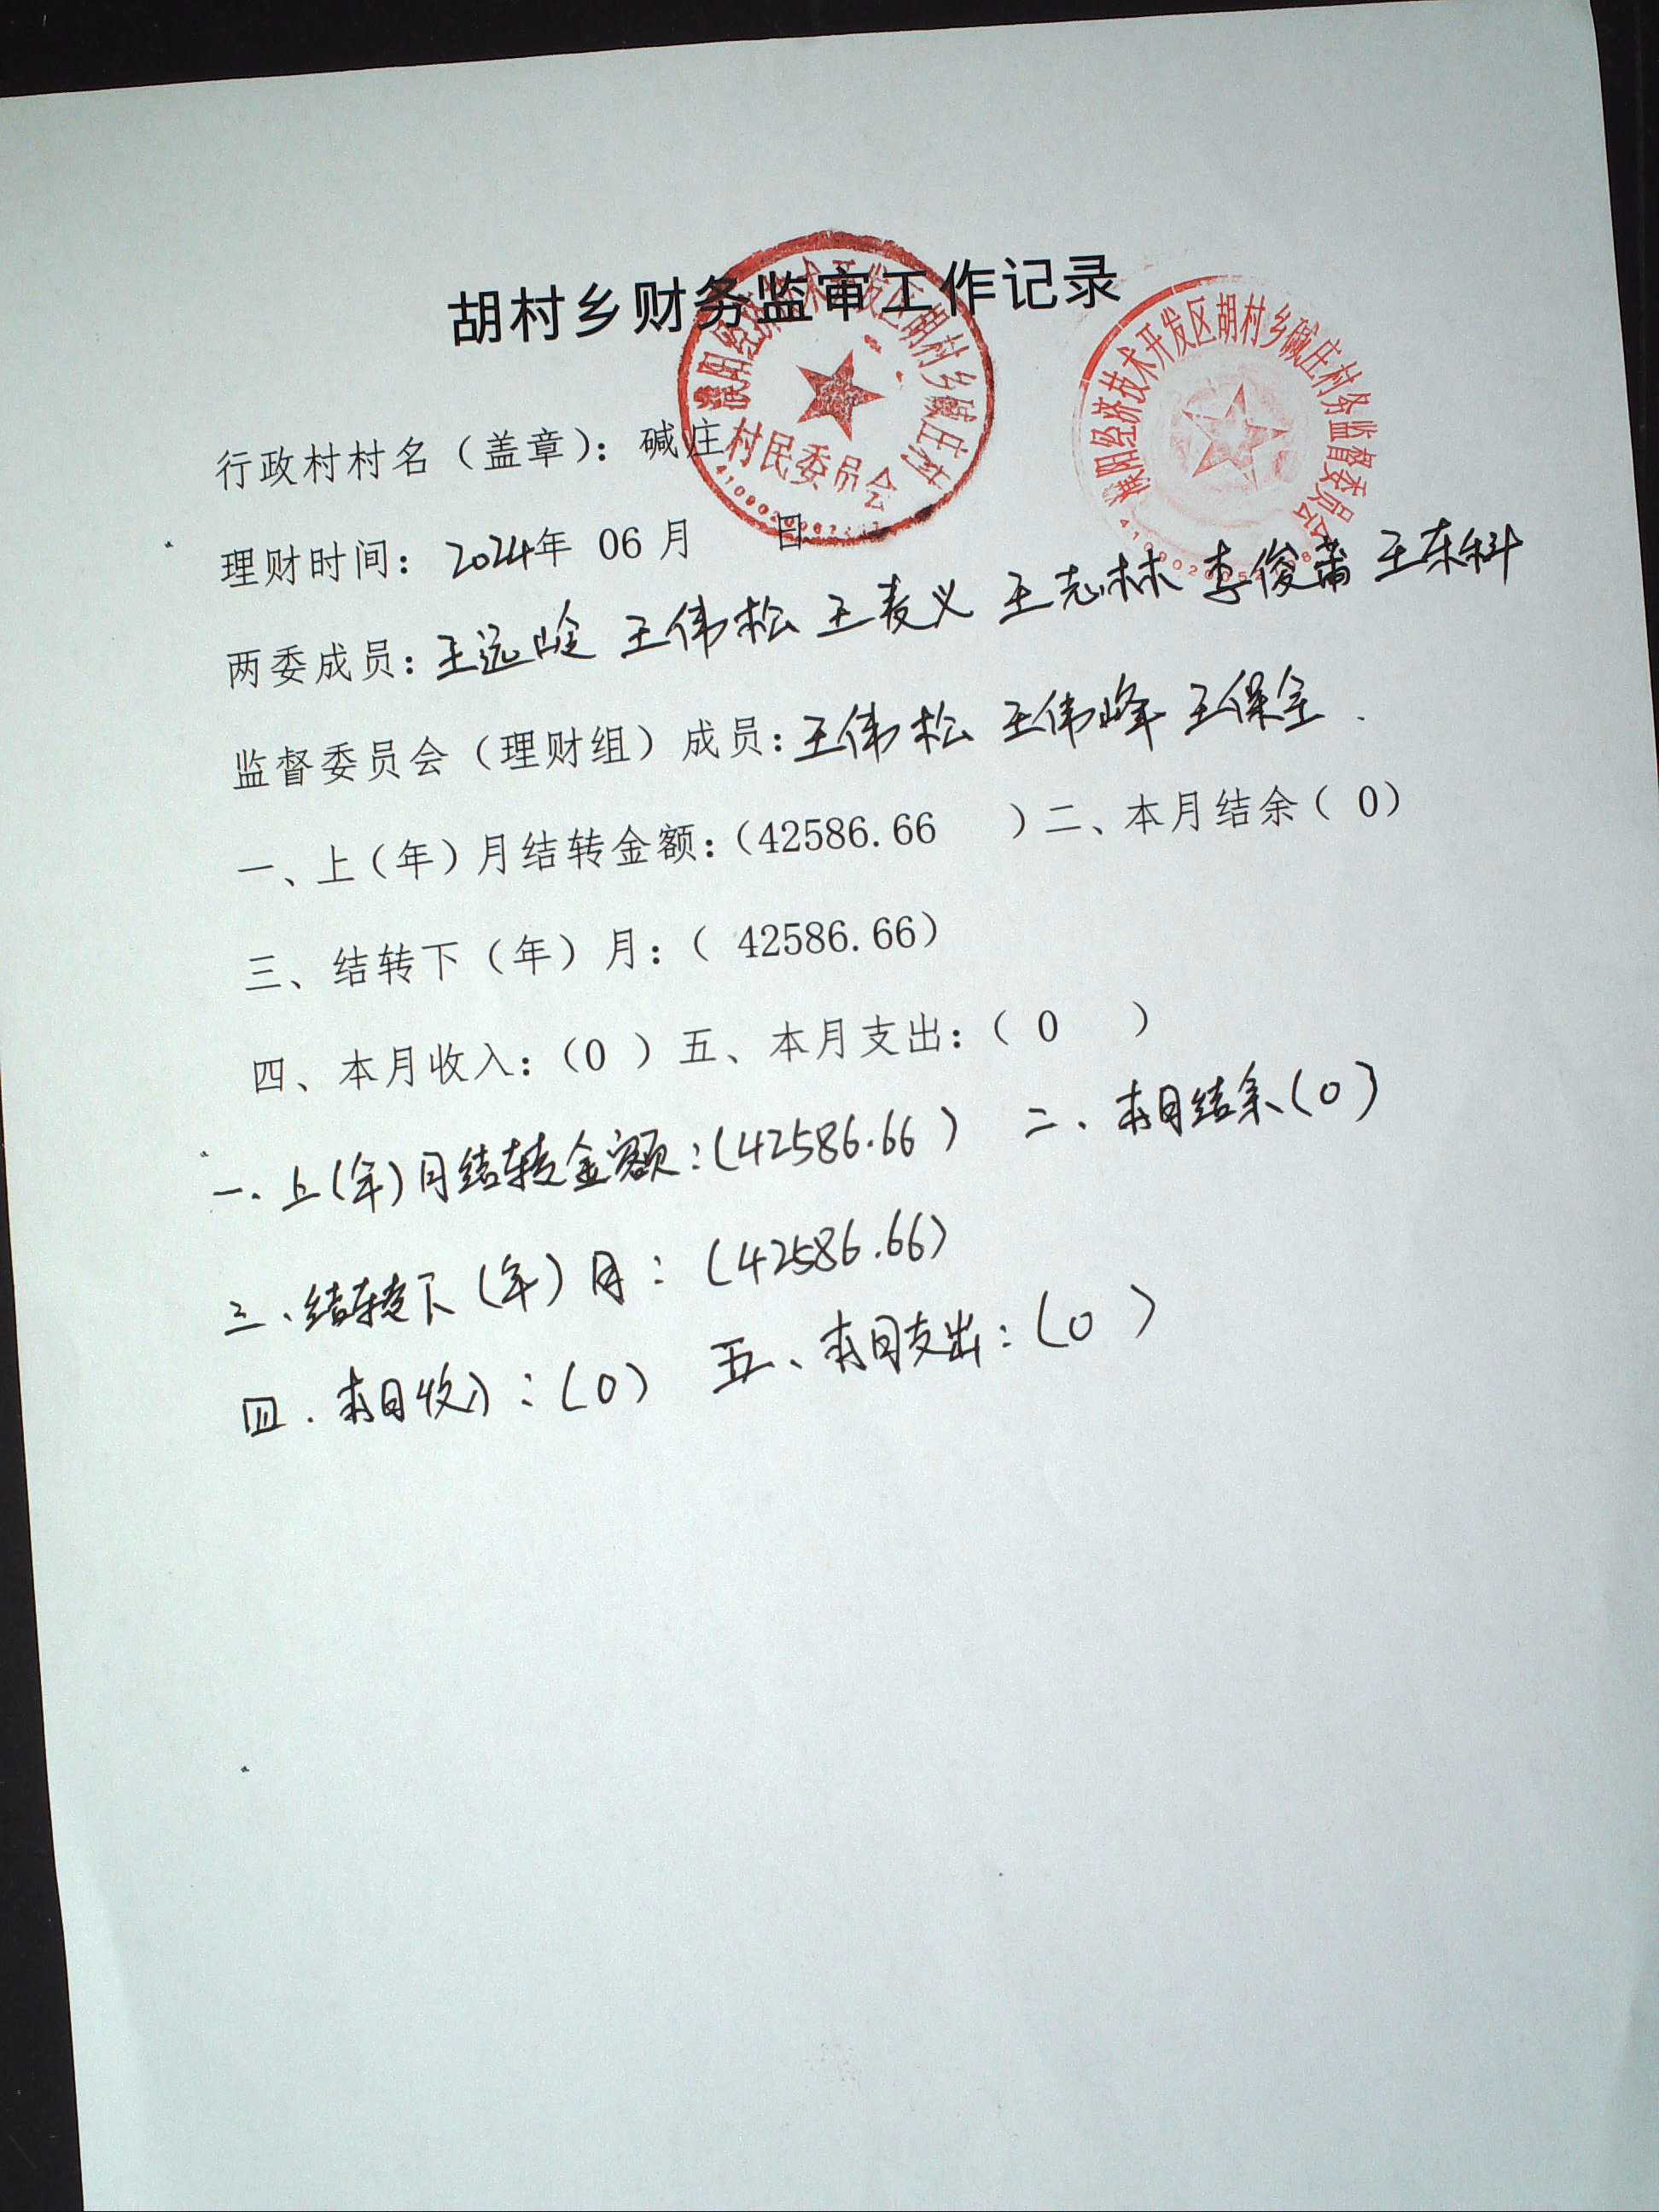 胡村乡财务监审工作记录
濮阳经济技术开发区胡村乡碱庄村
村民委员会
濮阳经济技术开发区胡村乡碱庄村务监督委员会
行政村村名（盖章）：碱庄
理财时间：2024年 06月 日
两委成员：王远 王伟松 王麦义 王志林 李俊 王东科
监督委员会（理财组）成员：王伟松 王伟峰 王保全
一、上（年）月结转金额：（42586.66 ）二、本月结余（ 0）
三、结转下（年）月：（ 42586.66）
四、本月收入：（0 ）五、本月支出：（ 0 ）
一、上（年）月结转金额：（42586.66） 二、本月结余（0）
三、结转下（年）月：（42586.66）
四、本月收入：（0） 五、本月支出：（0 ）